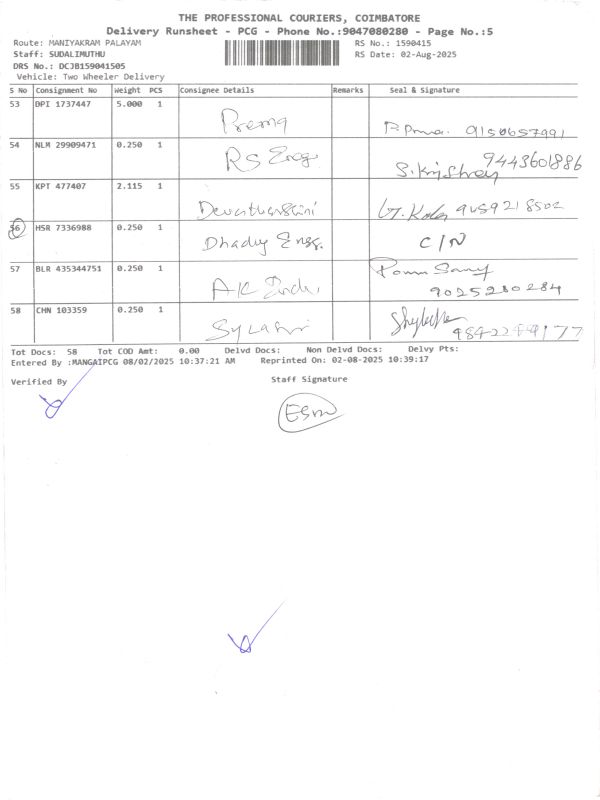 THE PROFESSIONAL COURIERS, COIMBATORE
Delivery Runsheet - PCG - Phone No.:9047080280 - Page No.:5
Route: MANIYAKRAM PALAYAM RS No.: 1590415
Staff: SUDALIMUTHU RS Date: 02-Aug-2025
DRS No.: DCJB159041505
Vehicle: Two Wheeler Delivery
S No Consignment No Weight PCS Consignee Details Remarks Seal & Signature
53 DPI 1737447 5.000 1
Prema 9150657991
54 NLM 29909471 0.250 1
RS Engg. 9443601886
55 KPT 477407 2.115 1
Devatharshini
56 HSR 7336988 0.250 1
Engg. C/N
57 BLR 435344751 0.250 1
AK 9025280284
58 CHN 103359 0.250 1
Tot Docs: 58 Tot COD Amt: 0.00 Delvd Docs: Non Delvd Docs: Delvy Pts:
Entered By :MANGAIPCG 08/02/2025 10:37:21 AM Reprinted On: 02-08-2025 10:39:17
Verified By Staff Signature